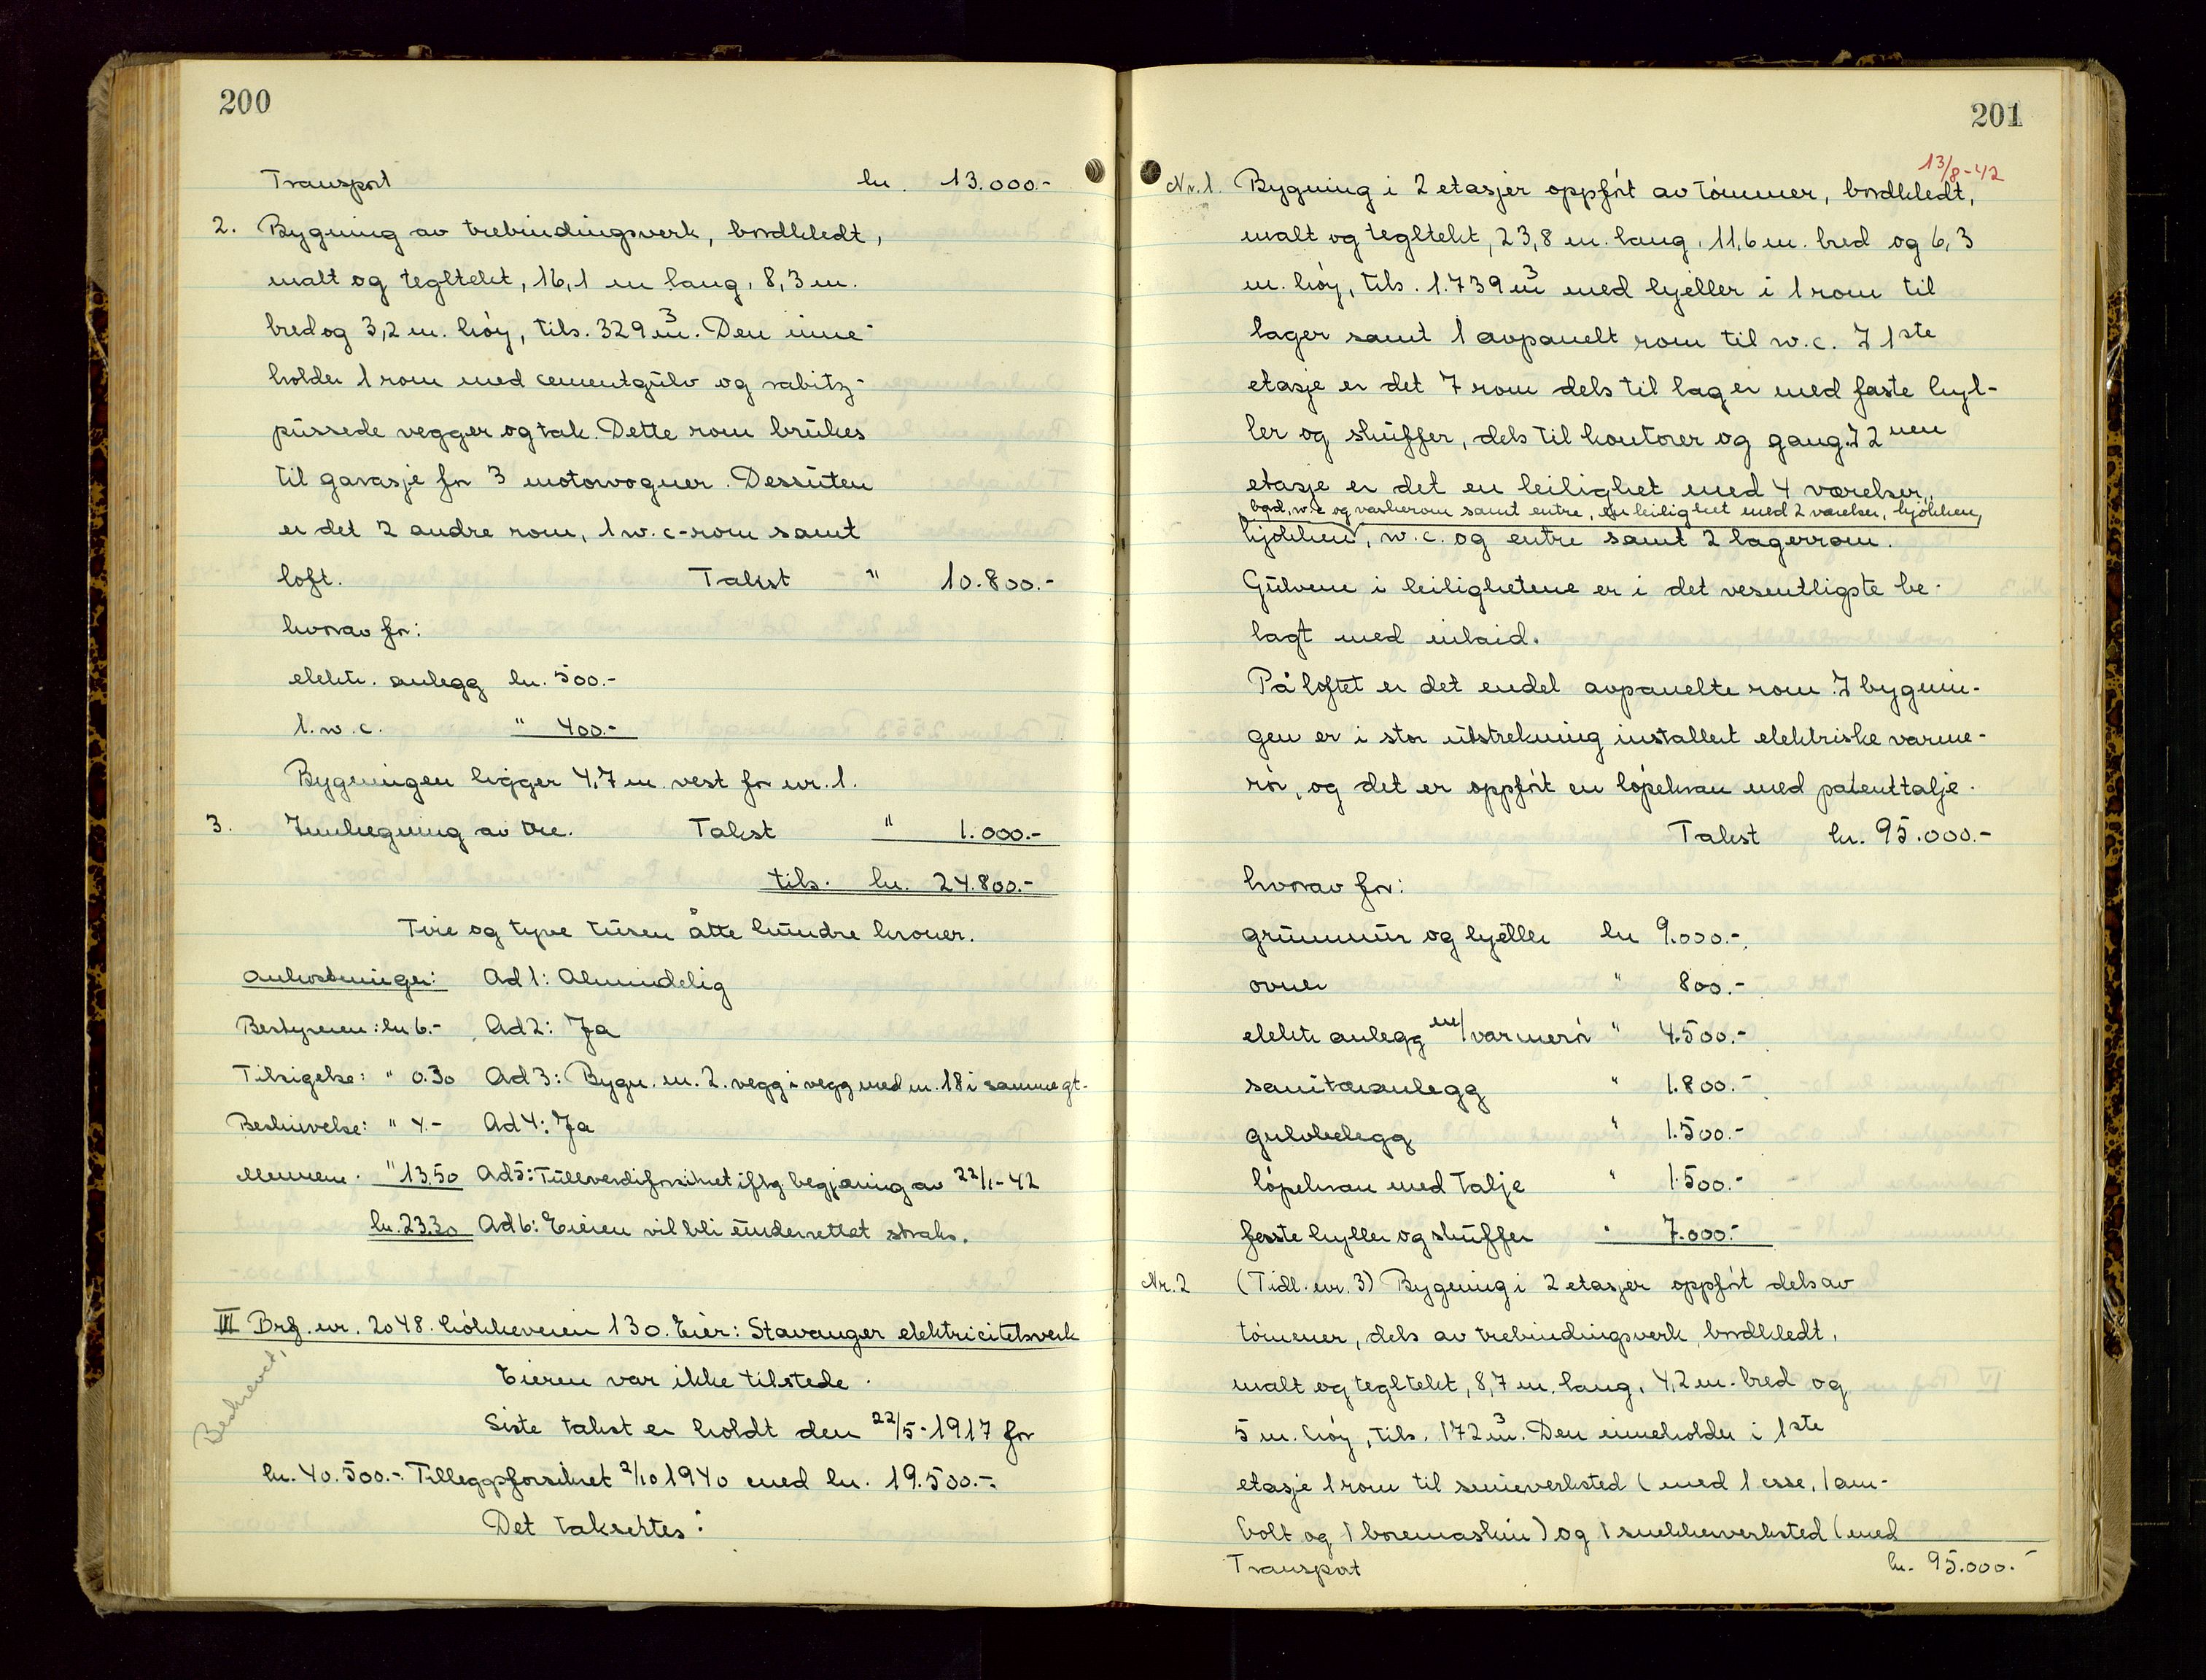 200
Transport kr. 13.000.-
2. Bygning av trebindingsverk, bordkledt,
malt og tegltekt, 16,1 m lang, 8,3 m.
bred og 3,2 m. høy, tils. 329 m³. Den inne-
holder 1 rom med cementgulv og rabitz-
pussede vegger og tak. Dette rom brukes
til garasje for 3 motorvogner. Dessuten
er det 2 andre rom, 1 w.c-rom samt
loft. Takst " 10.800.-
hvorav for:
elektr. anlegg kr. 500.-
1. w.c. " 400.-
Bygningen ligger 4,7 m. vest for nr. 1.
3. Innhegning av tre. Takst " 1.000.-
tils. kr. 24.800.-
Fire og tyve tusen åtte hundre kroner.
Omkostninger: Ad 1: Almindelig
Bestyreren: kr 6.- Ad 2: Ja
Tilsigelse: " 0.30 Ad 3: Bygn. nr. 2. vegg i vegg med nr. 18 i samme gt.
Beskrivelse: " 4.- Ad 4: Ja
Mennene. " 13.50 Ad 5: Fullverdiforsikret iflg. begjæring av 22/1-42
kr. 23.30 Ad 6: Eieren vil bli underrettet straks.
III Brf. nr. 2048. Løkkeveien 130. Eier: Stavanger elektricitetsverk
Beskrevet,
Eieren var ikke tilstede.
Siste takst er holdt den 22/5-1917 for
kr. 40.500.-. Tilleggsforsikret 2/10 1940 med kr. 19.500.-.
Det taksertes:
201
13/8-42
Nr. 1. Bygning i 2 etasjer oppført av tømmer, bordkledt,
malt og tegltekt, 23,8 m. lang, 11,6 m. bred og 6,3
m. høy, tils. 1.739 m³ med kjeller i 1 rom til
lager samt 1 avpanelt rom til w.c. I 1ste
etasje er det 7 rom dels til lager med faste hyl-
ler og skuffer, dels til kontorer og gang. I 2nen
etasje er det en leilighet med 4 værelser,
bad, w.c og vaskerom samt entre, en leilighet med 2 værelser, kjøkken,
kjøkken, w.c. og entre samt 2 lagerrom.
Gulvene i leilighetene er i det vesentligste be-
lagt med inlaid.
På loftet er det endel avpanelte rom. I bygnin-
gen er i stor utstrekning installert elektriske varme-
rør, og det er oppført en løpekran med patenttalje.
Takst kr. 95.000.-
hvorav for:
grunnmur og kjeller kr 9.000.-
ovner " 800.-
elektr anlegg m/varmerør " 4.500.-
sanitæranlegg " 1.800.-
gulvbelegg " 1.500.-
løpekran med talje " 1.500.-
faste hyller og skuffer " 7.000.-
Nr. 2 (Tidl. nr. 3) Bygning i 2 etasjer oppført dels av
tømmer, dels av trebindingsverk, bordkledt,
malt og tegltekt, 8,7 m. lang, 4,2 m. bred og
5 m. høy, tils. 172 m³. Den inneholder i 1ste
etasje 1 rom til smieverksted (med 1 esse, 1 am-
bolt og 1 boremaskin) og 1 snekkerverksted (med
Transport kr. 95.000.-